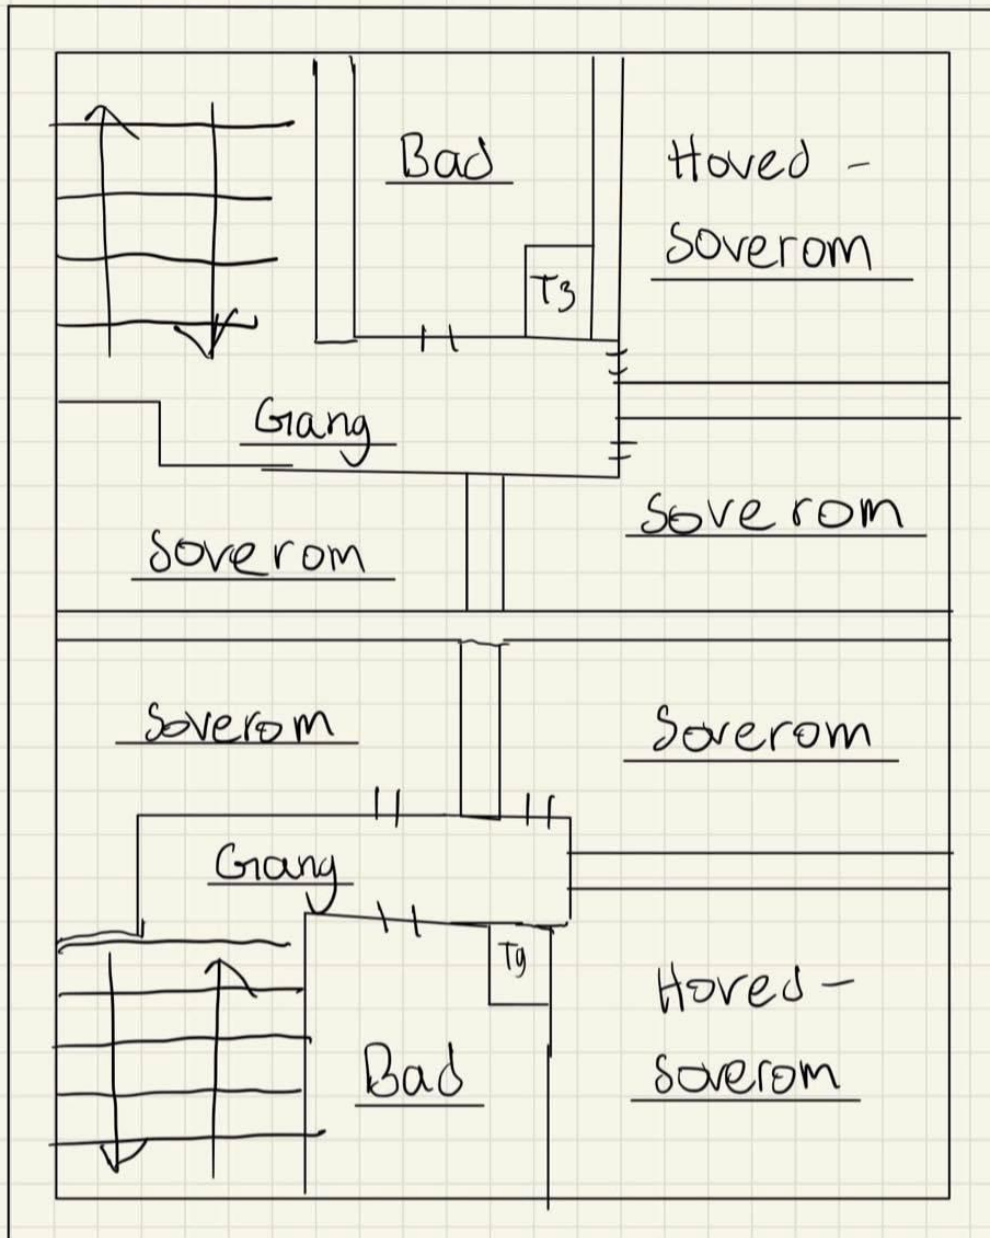 Bad
Hoved -
soverom
T3
Gang
Soverom
Soverom
Soverom
Soverom
Gang
T9
Hoved -
soverom
Bad